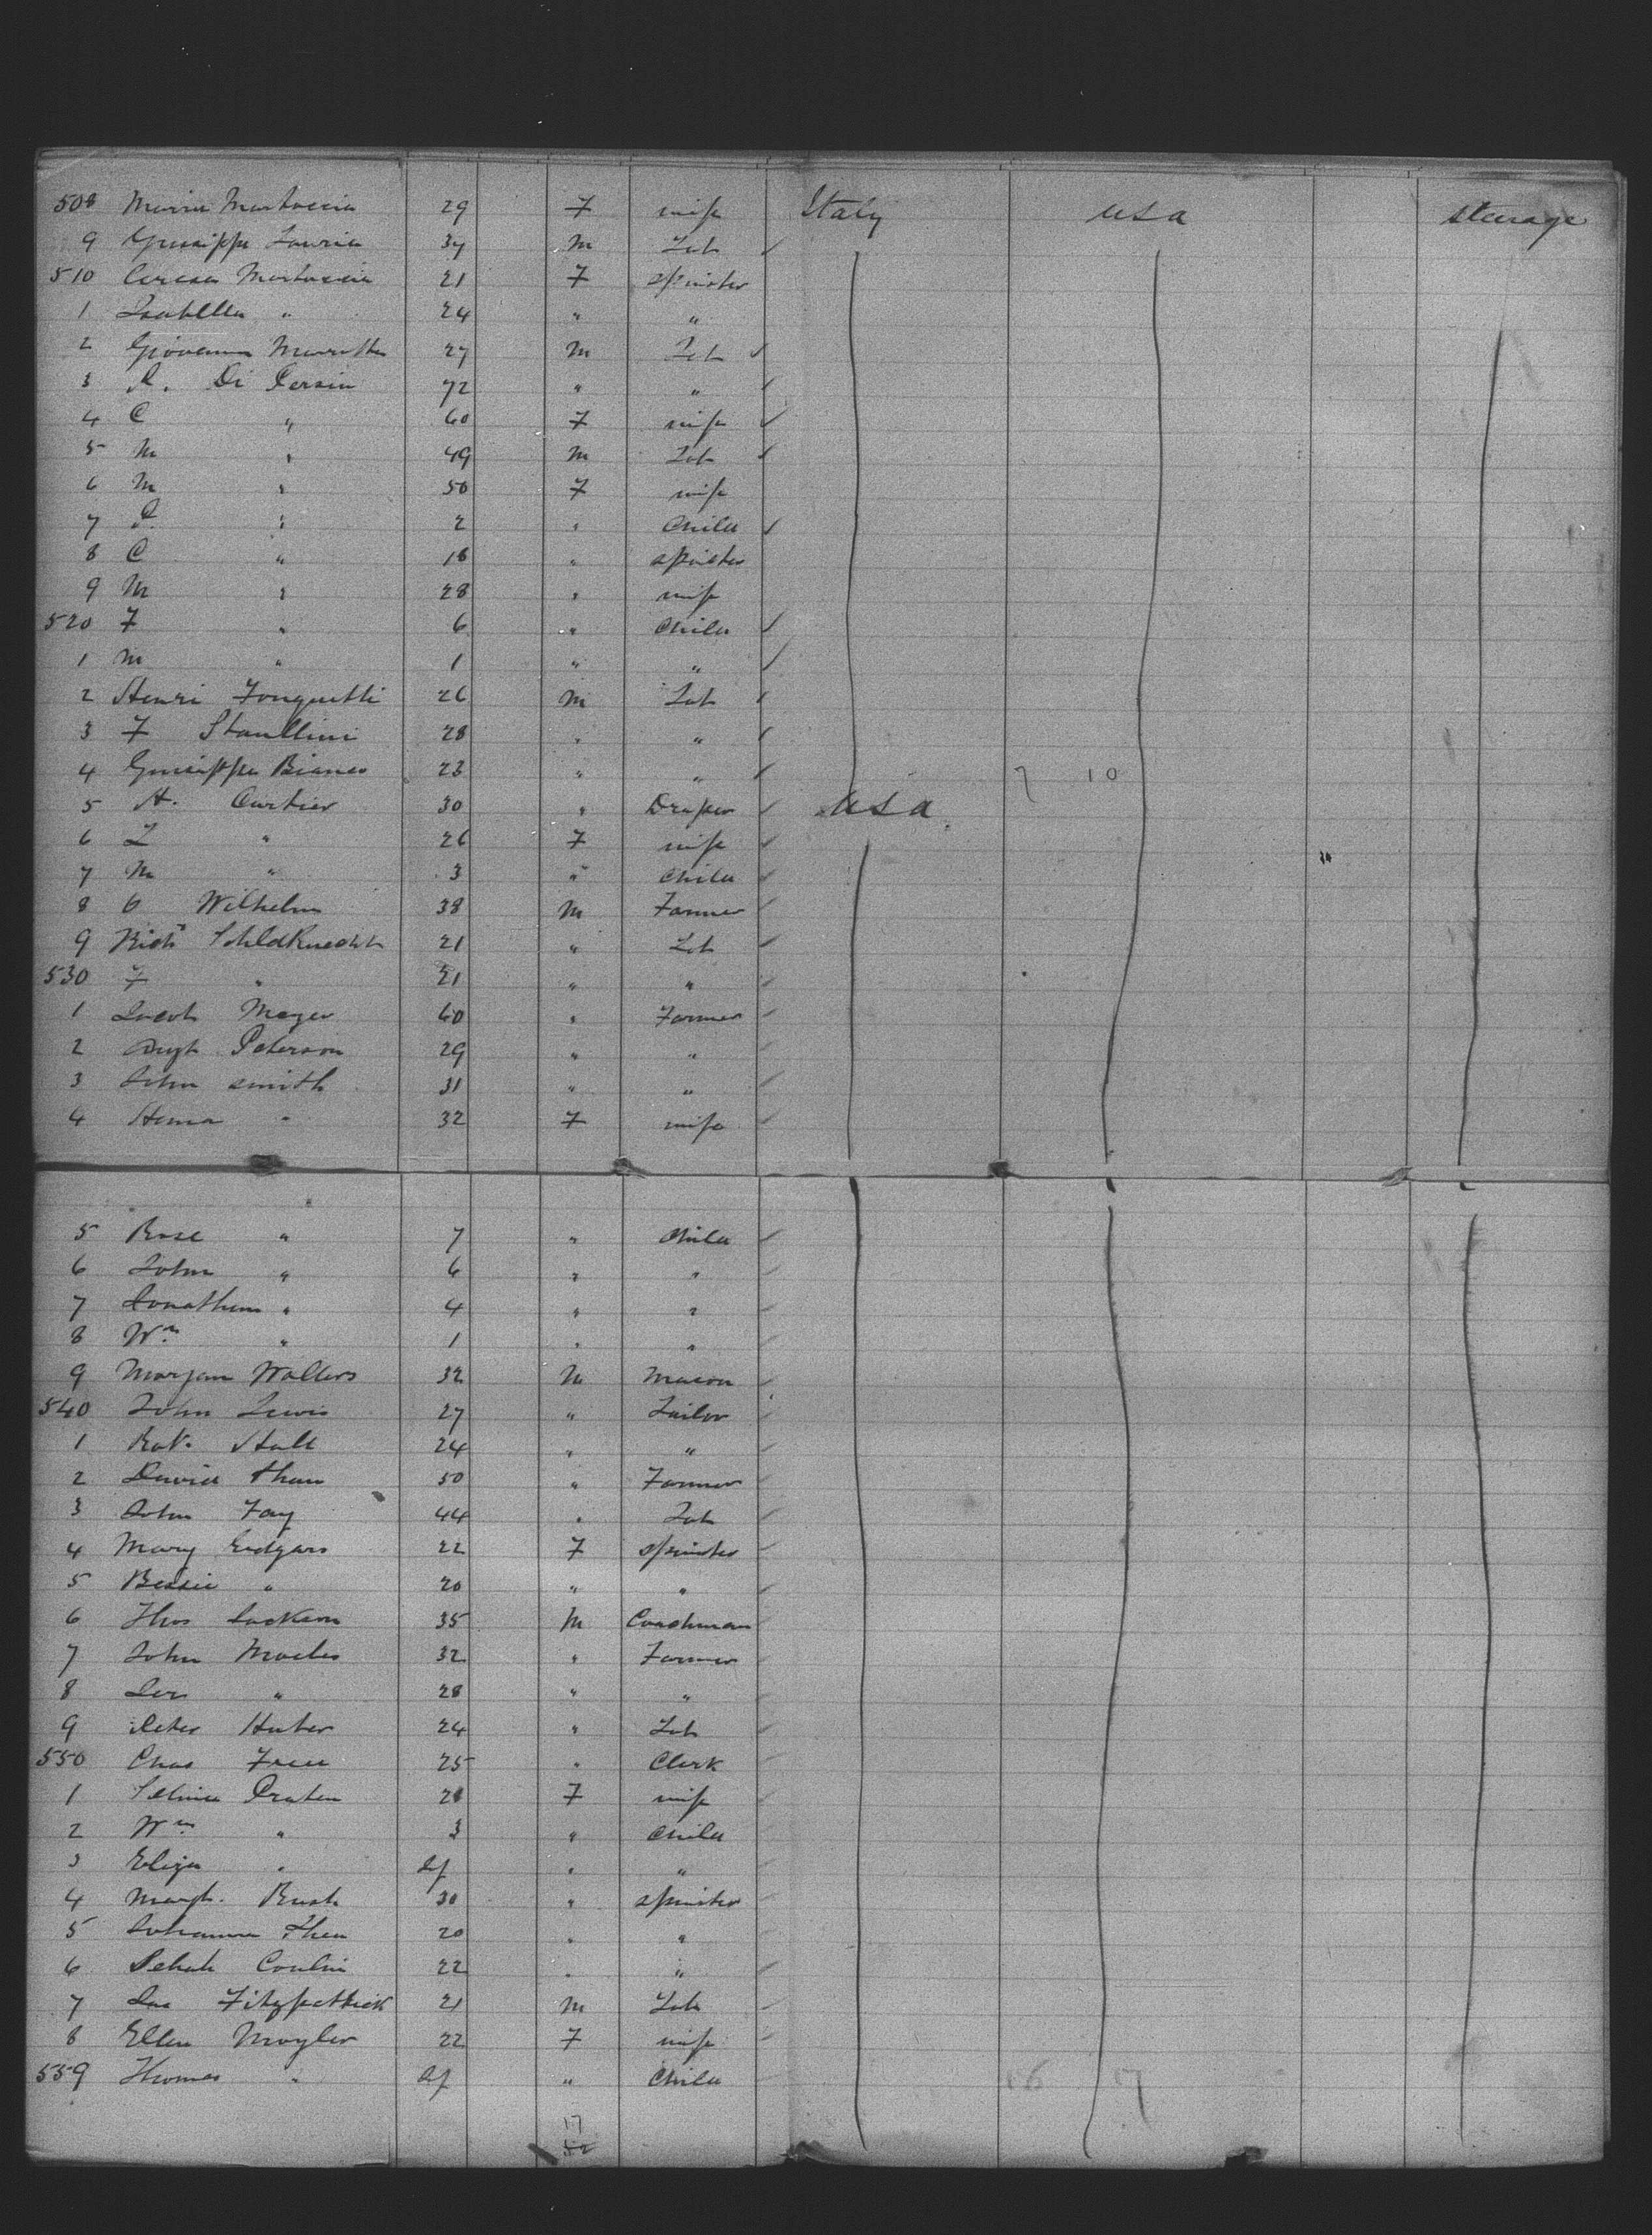 508 Maria Martoccia 29 F wife Italy USA steerage
9 Guisippe Lauria 34 M Lab
510 Teresa Martoccia 21 F spinster
1 Isabella " 24 " "
2 Giovanni 27 M Lab
3 Di Persia 72 " "
4 C " 60 F wife
5 M " 49 M Lab
6 M " 50 F wife
7 P. " 2 " Child
8 C " 18 " spinster
9 M " 28 " wife
520 F " 6 " Child
1 M " 1 " "
2 Henri Fonguetti 26 M Lab
3 F Stanllini 28 " "
4 Guisippe Bianco 23 " " 7 10
5 A. Cartier 30 " Draper USA
6 L " 26 F wife
7 M " 3 " Child
8 Wilhelm 38 M Farmer
9 Richd Schldknecht 21 " Lab
530 F " 21 " "
1 Jacob Meyer 60 " Farmer
2 Augt Peterson 29 " "
3 John Smith 31 " "
4 " 32 F wife
5 Rose " 7 " Child
6 John " 6 " "
7 Jonathan " 4 " "
8 Wm " 1 " "
9 Morgan Walters 32 M Mason
540 John Lewis 27 " Tailor
1 Robt. Hall 24 " "
2 David 50 " Farmer
3 John Fay 44 " Lab
4 Mary Edgars 22 F spinster
5 Bessie " 20 " "
6 Thos Jackson 35 M Coachman
7 John 32 " Farmer
8 " 28 " "
9 Peter Huber 24 " Lab
550 Chas Free 25 " Clerk
1 Selina 28 F wife
2 Wm " 3 " Child
3 Eliza " Inf " "
4 Margt. Rush 30 " spinster
5 Johanna Shea 20 " "
6 22 " "
7 Jas Fitzpattrick 21 M Lab
8 Ellen Moyler 22 F wife
559 Thomas " Inf " Child
16 17
17
52